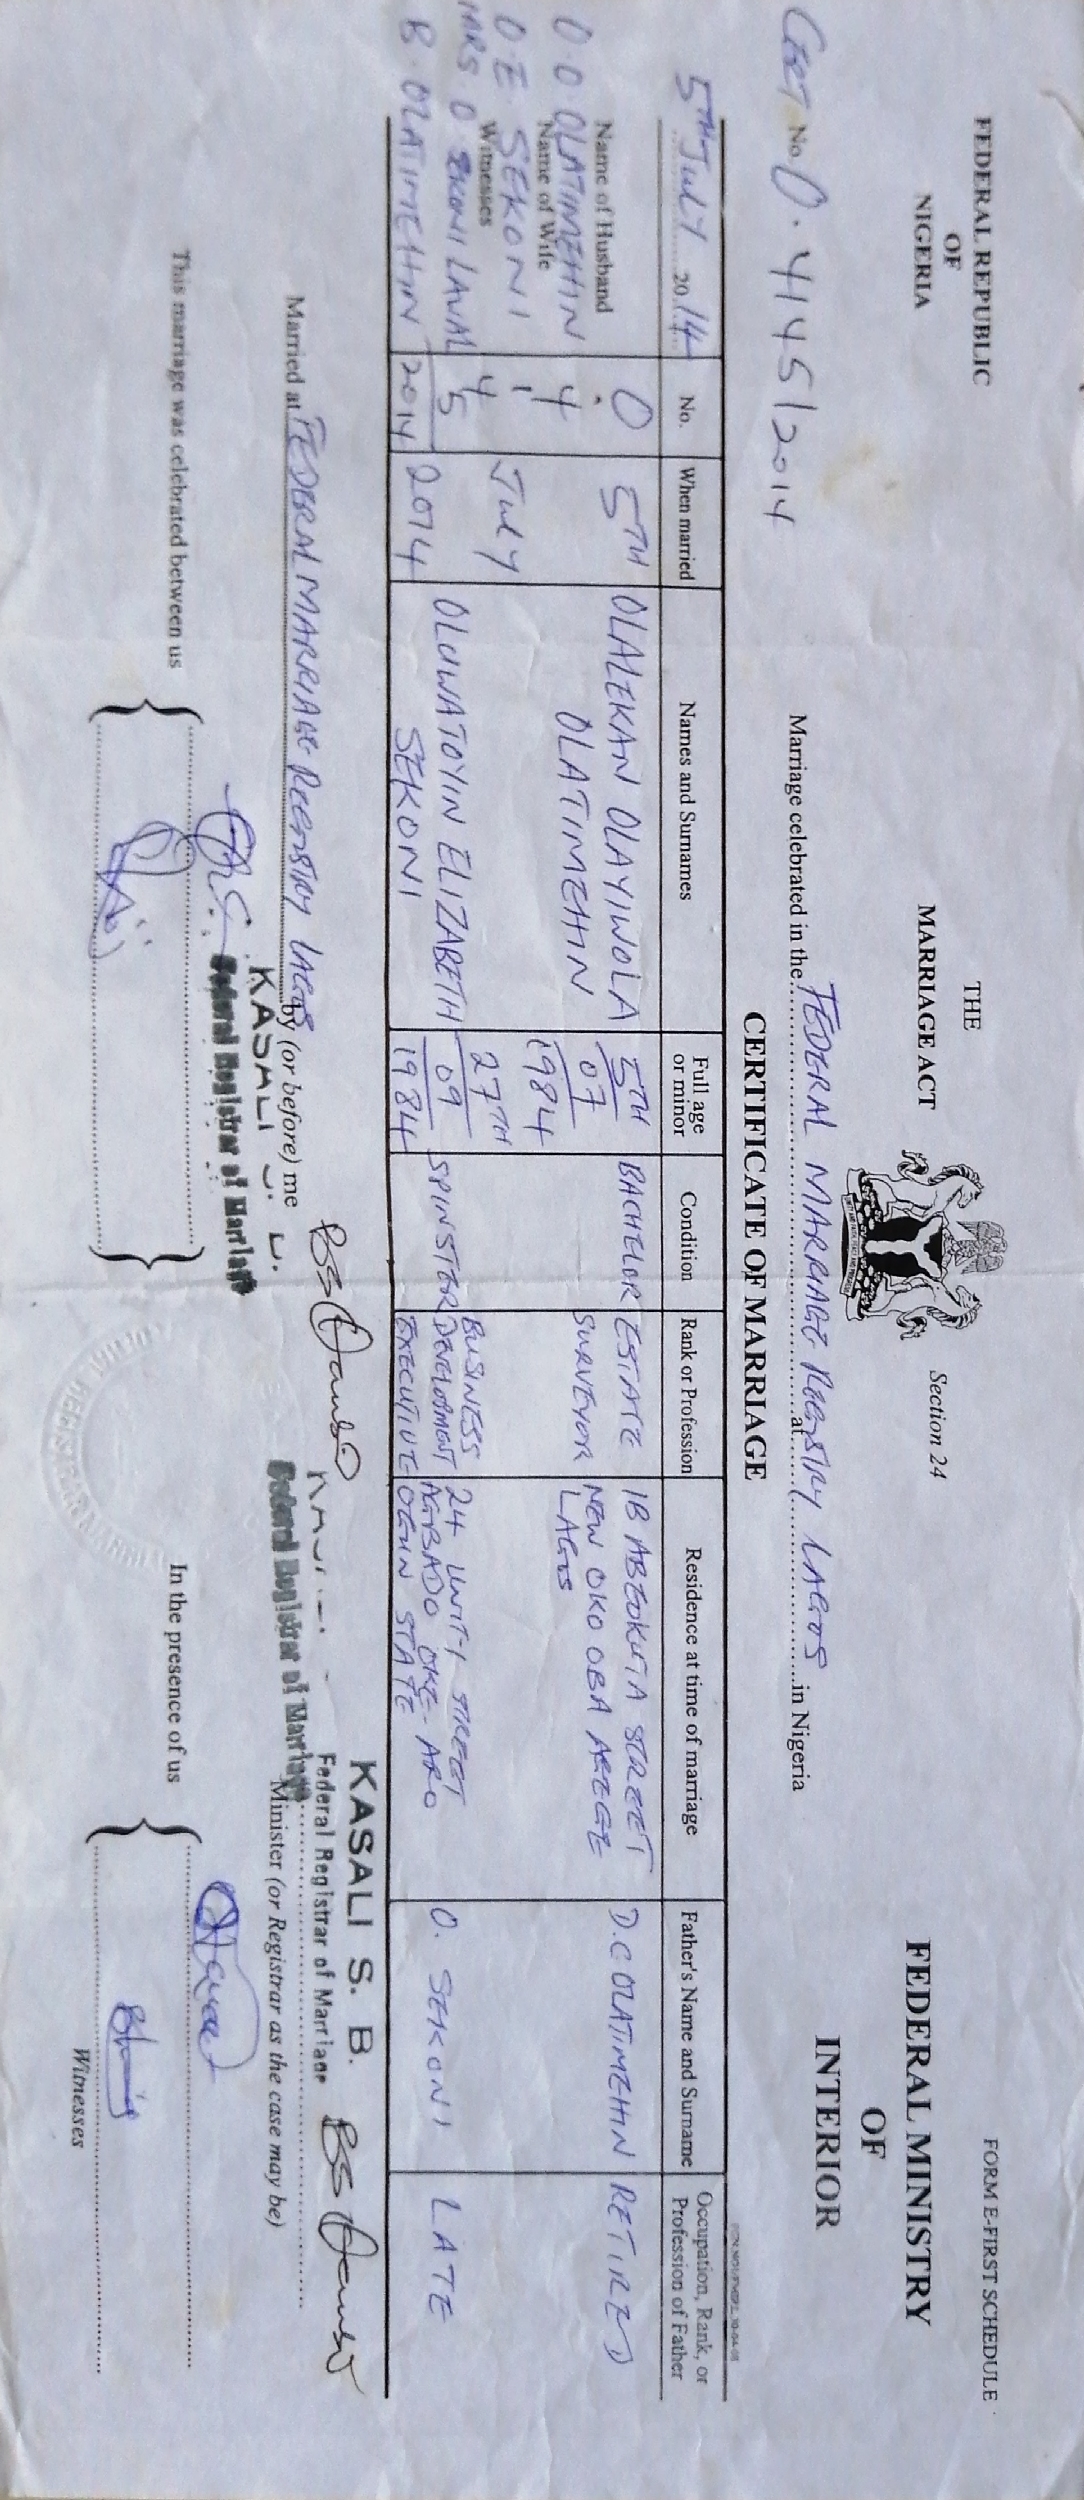 FORM E-FIRST SCHEDULE
FEDERAL REPUBLIC
OF
NIGERIA
THE
MARRIAGE ACT
Section 24
FEDERAL MINISTRY
OF
INTERIOR
UNITY AND FAITH, PEACE AND PROGRESS
CERT No O. 4145/2014
Marriage celebrated in the FEDERAL MARRIAGE REGISTRY at LAGOS in Nigeria
CERTIFICATE OF MARRIAGE
5TH JULY 2014
No.
When married
Names and Surnames
Full age or minor
Condition
Rank or Profession
Residence at time of marriage
Father's Name and Surname
Occupation, Rank, or Profession of Father
Name of Husband
O. O OLATIMEHIN
Name of Wife
O. E SEKONI
Witnesses
MRS O SEKONI LAWAL
B. OLATIMEHIN
O. 4145
2014
5TH
JULY
2014
OLALEKAN OLAYIWOLA
OLATIMEHIN
5TH
07
1984
BACHELOR
ESTATE
SURVEYOR
1B ABEOKUTA STREET
NEW OKO OBA AREGE
LAGOS
D. C OLATIMEHIN
RETIRED
OLUWATOYIN ELIZABETH
SEKONI
27TH
09
1984
SPINSTER
BUSINESS
DEVELOPMENT
EXECUTIVE
24 UNITY STREET
AGBADO OKE-ARO
OGUN STATE
O. SEKONI
LATE
Married at FEDERAL MARRIAGE REGISTRY LAGOS by (or before) me
KASALI
Federal Registrar of Marriage
Federal Registrar of Marriage
KASALI S. B.
Federal Registrar of Marriage
Minister (or Registrar as the case may be)
This marriage was celebrated between us
In the presence of us
Witnesses